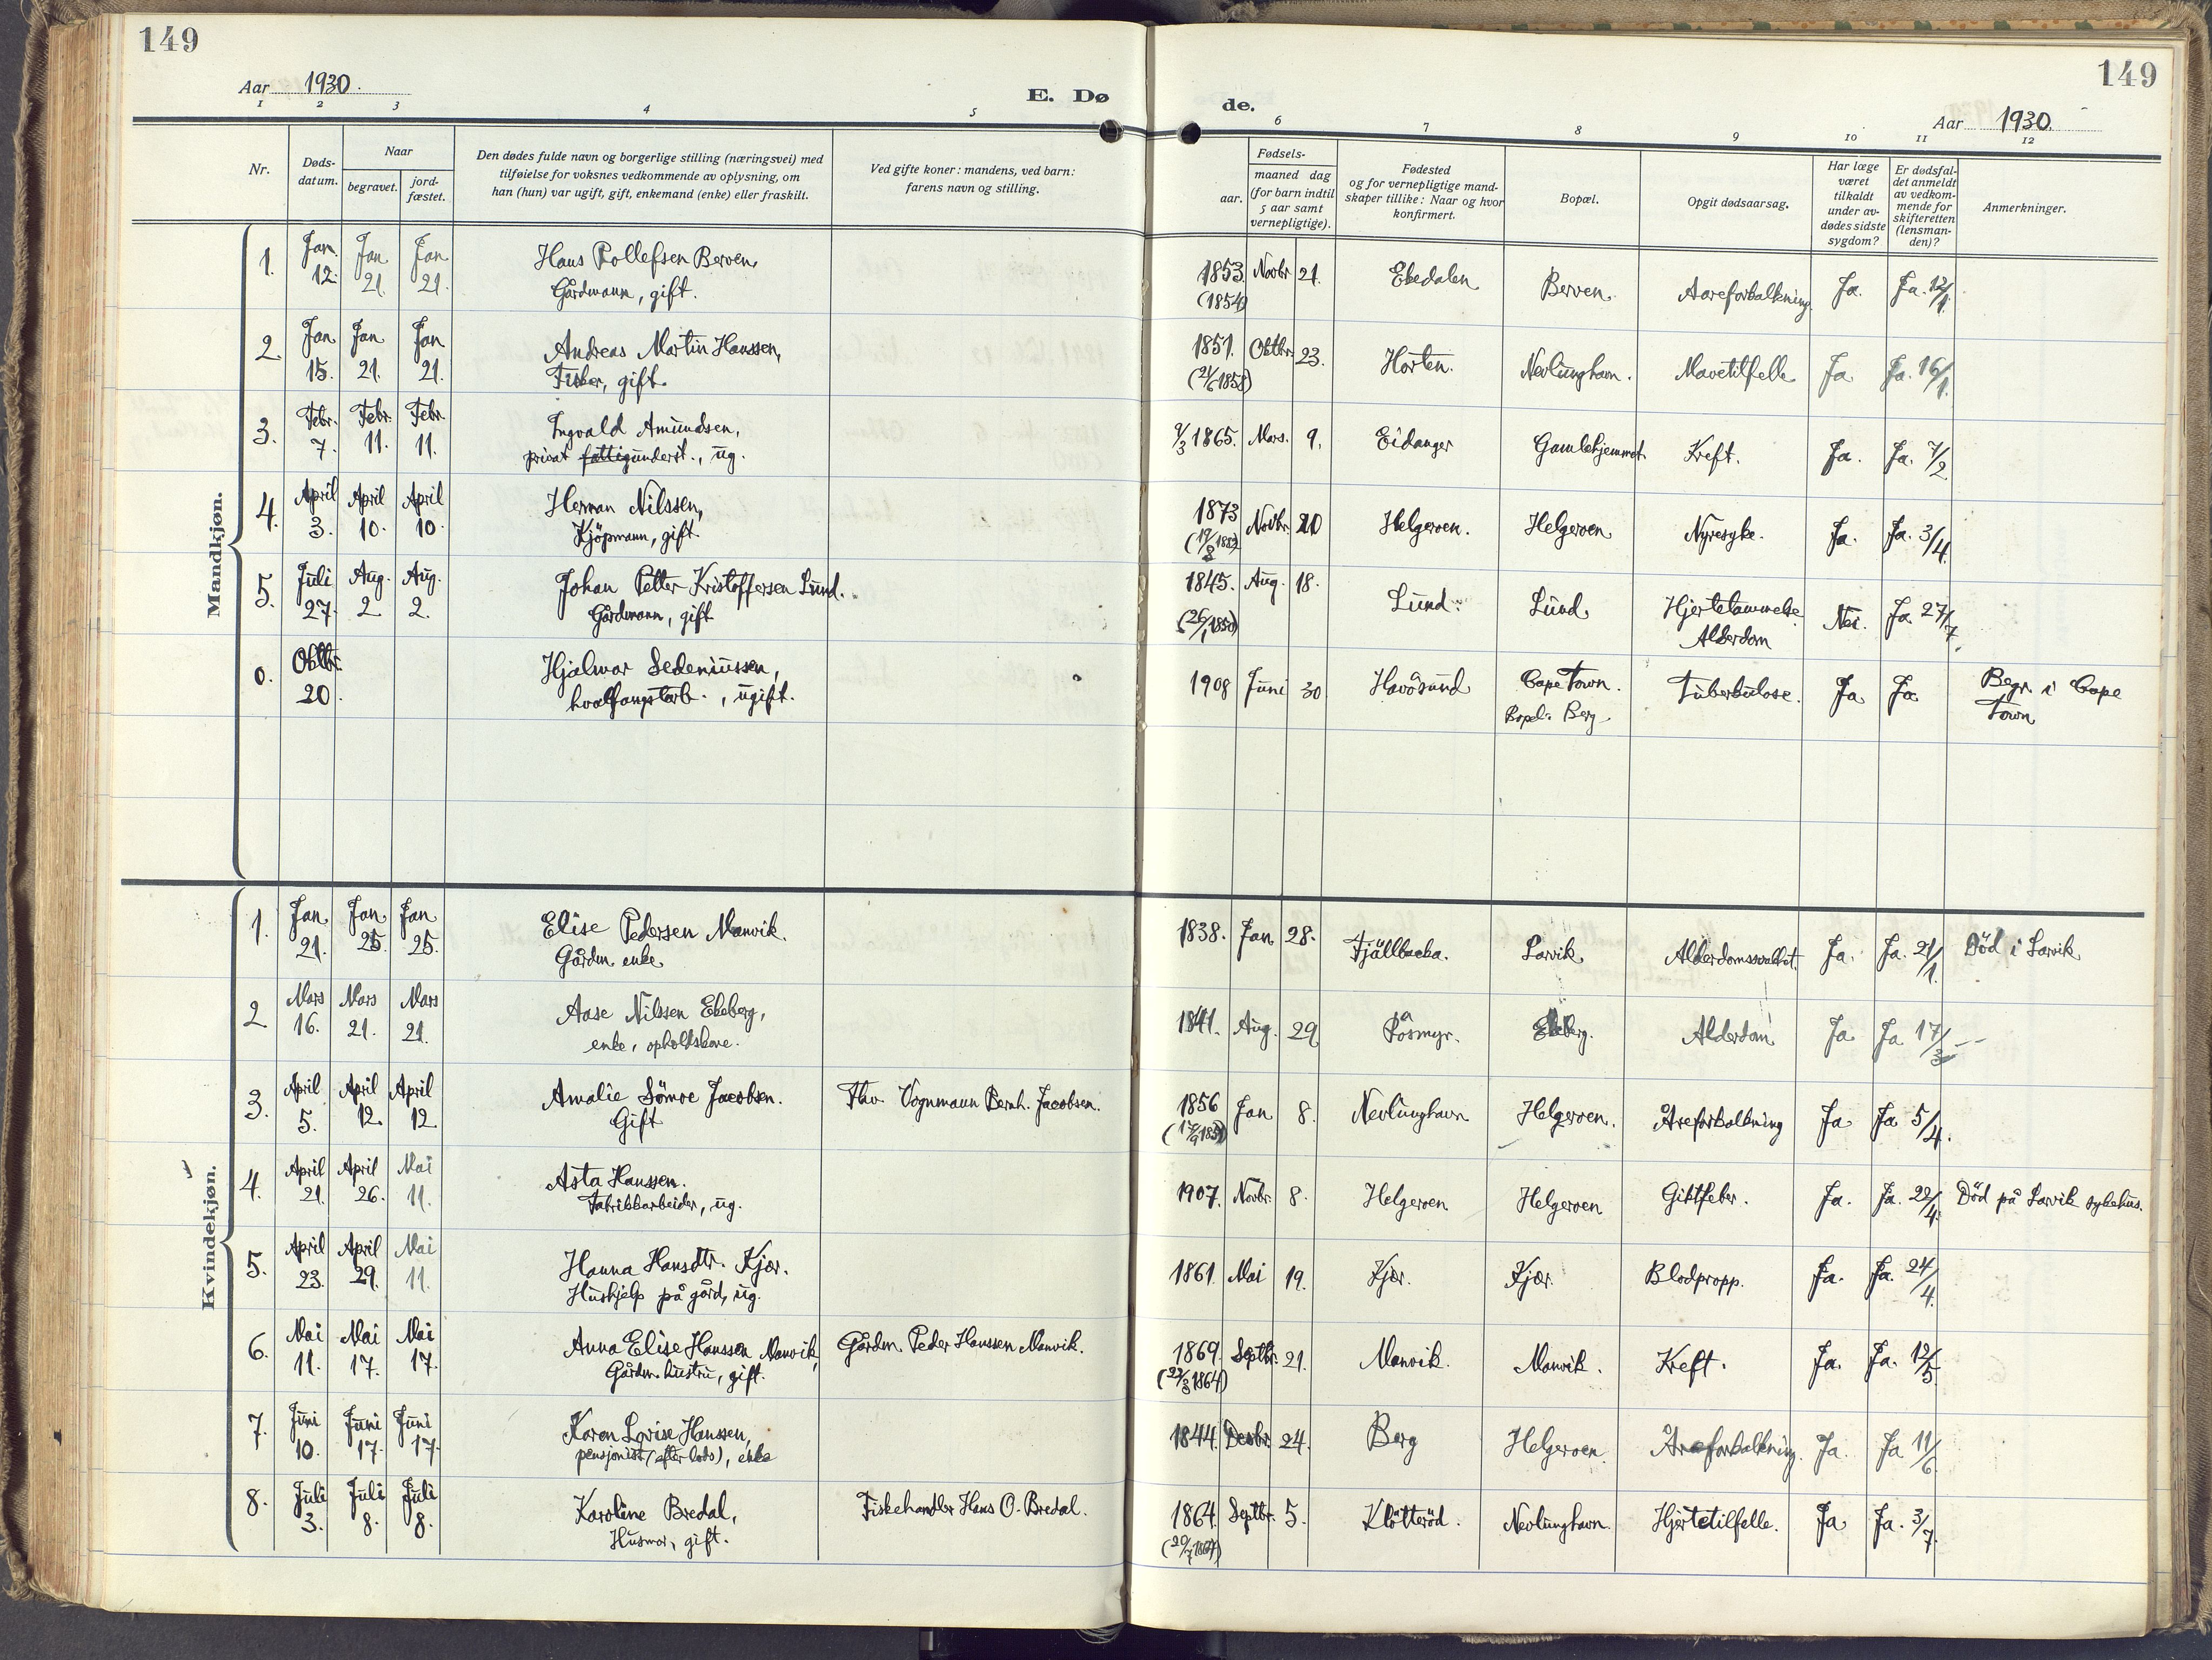 149
149
Aar 1930.
E. Dø
de.
Aar 1930.
1 2 3 4 5 6 7 8 9 10 11 12
Nr.
Døds-
datum.
Naar
begravet.
jord-
fæstet.
Den dødes fulde navn og borgerlige stilling (næringsvei) med
tilføielse for voksnes vedkommende av oplysning, om
han (hun) var ugift, gift, enkemand (enke) eller fraskilt.
Ved gifte koner: mandens, ved barn:
farens navn og stilling.
Fødsels-
aar.
maaned dag
(for barn indtil
5 aar samt
vernepligtige).
Fødested
og for vernepligtige mand-
skaper tillike: Naar og hvor
konfirmert.
Bopæl.
Opgit dødsaarsag.
Har læge
været
tilkaldt
under av-
dødes sidste
sygdom?
Er dødsfal-
det anmeldt
av vedkom-
mende for
skifteretten
(lensman-
den)?
Anmerkninger.
Mandkjøn.
1. Jan. 12. Jan 21. Jan 21. Hans Rollefsen Berven, 1853 Novbr 21. Ekedalen Berven. Aareforkalkning Ja. Ja. 12/1.
Gårdmann, gift. (1854)
2. Jan 15. Jan 21. Jan 21. Andreas Martin Hanssen, 1851. Oktbr. 23. Horten. Nevlunghavn. Mavetilfelle Ja Ja. 16/1.
Fisker, gift. (21/6 1858)
3. Febr. 7. Febr. 11. Febr. 11. Ingvald Amundsen, 9/3 1865. Mars. 9. Eidanger Gamlehjemmet. Kreft. Ja. Ja. 7/2
privat fattigunderst., ug.
4. April 3. April 10. April 10. Herman Nilssen, 1873 Novbr. 20 Helgeroen. Helgeroen Nyresyke. Ja. Ja. 3/4.
Kjöpmann, gift.
5. Juli 27. Aug. 2 Aug. 2. Johan Petter Kristoffersen Lund. 1845. Aug. 18. Lund. Lund. Hjertelammelse Nei. Ja 27/7.
Gårdmann, gift (26/1 1850) Alderdom
0. Oktbr. 20. Hjalmar Sedeniussen, 1908 Juni 30 Havösund Cape Town. Tuberkulose. Ja Ja Begr. i Cape
hvalfangstarb., ugift. Bopel: Berg Town
Kvindekjøn.
1. Jan 21. Jan 25. Jan 25. Elise Pedersen Manvik. 1838. Jan 28. Fjällbacka. Larvik Alderdomssvakhet. Ja. Ja. 21/1. Död i Larvik
Gårdm. enke
2 Mars 16. Mars 21. Mars 21. Aase Nilssen Ekeberg, 1841. Aug. 29 Råsmyr. Ekeberg. Alderdom Ja Ja 17/3
enke, opholdskone.
3. April 5. April 12. April 12 Amalie Sömoe Jacobsen. Fhv. Vognmann Bernh. Jacobsen. 1856 Jan 8. Nevlunghavn Helgeroen. Åreforkalkning Ja Ja 5/4.
Gift
4. April 21. April 26. Mai 11. Asta Hanssen. 1907. Novbr. 8. Helgeroen Helgeroen Giktfeber. Ja. Ja. 22/4. Död på Larvik sykehus.
Fabrikkarbeider, ug.
5. April 23. April 29. Mai 11. Hanna Hansdtr. Kjær. 1861. Mai 19. Kjær. Kjær. Blodpropp. Ja. Ja. 24/4.
Hushjelp på gård, ug.
6. Mai 11. Mai 17. Mai 17. Anna Elise Hanssen Manvik, Gårdm. Peder Hanssen Manvik. 1869. Septbr. 21. Manvik. Manvik. Kreft. Ja. Ja. 12/5.
Gårdm. hustru, gift. (22/3 1864)
7. Juni 10. Juni 17. Juni 17. Karen Lovise Hanssen, 1844. Desbr. 24. Berg Helgeroen. Åreforkalkning. Ja. Ja 11/6.
pensjonist (efter lods), enke
8. Juli 3. Juli 8. Juli 8. Karoline Bredal, Fiskehandler Hans O. Bredal. 1864. Septbr. 5. Klåtteröd. Nevlunghavn. Hjertetilfelle. Ja Ja. 3/7.
Husmor, gift.